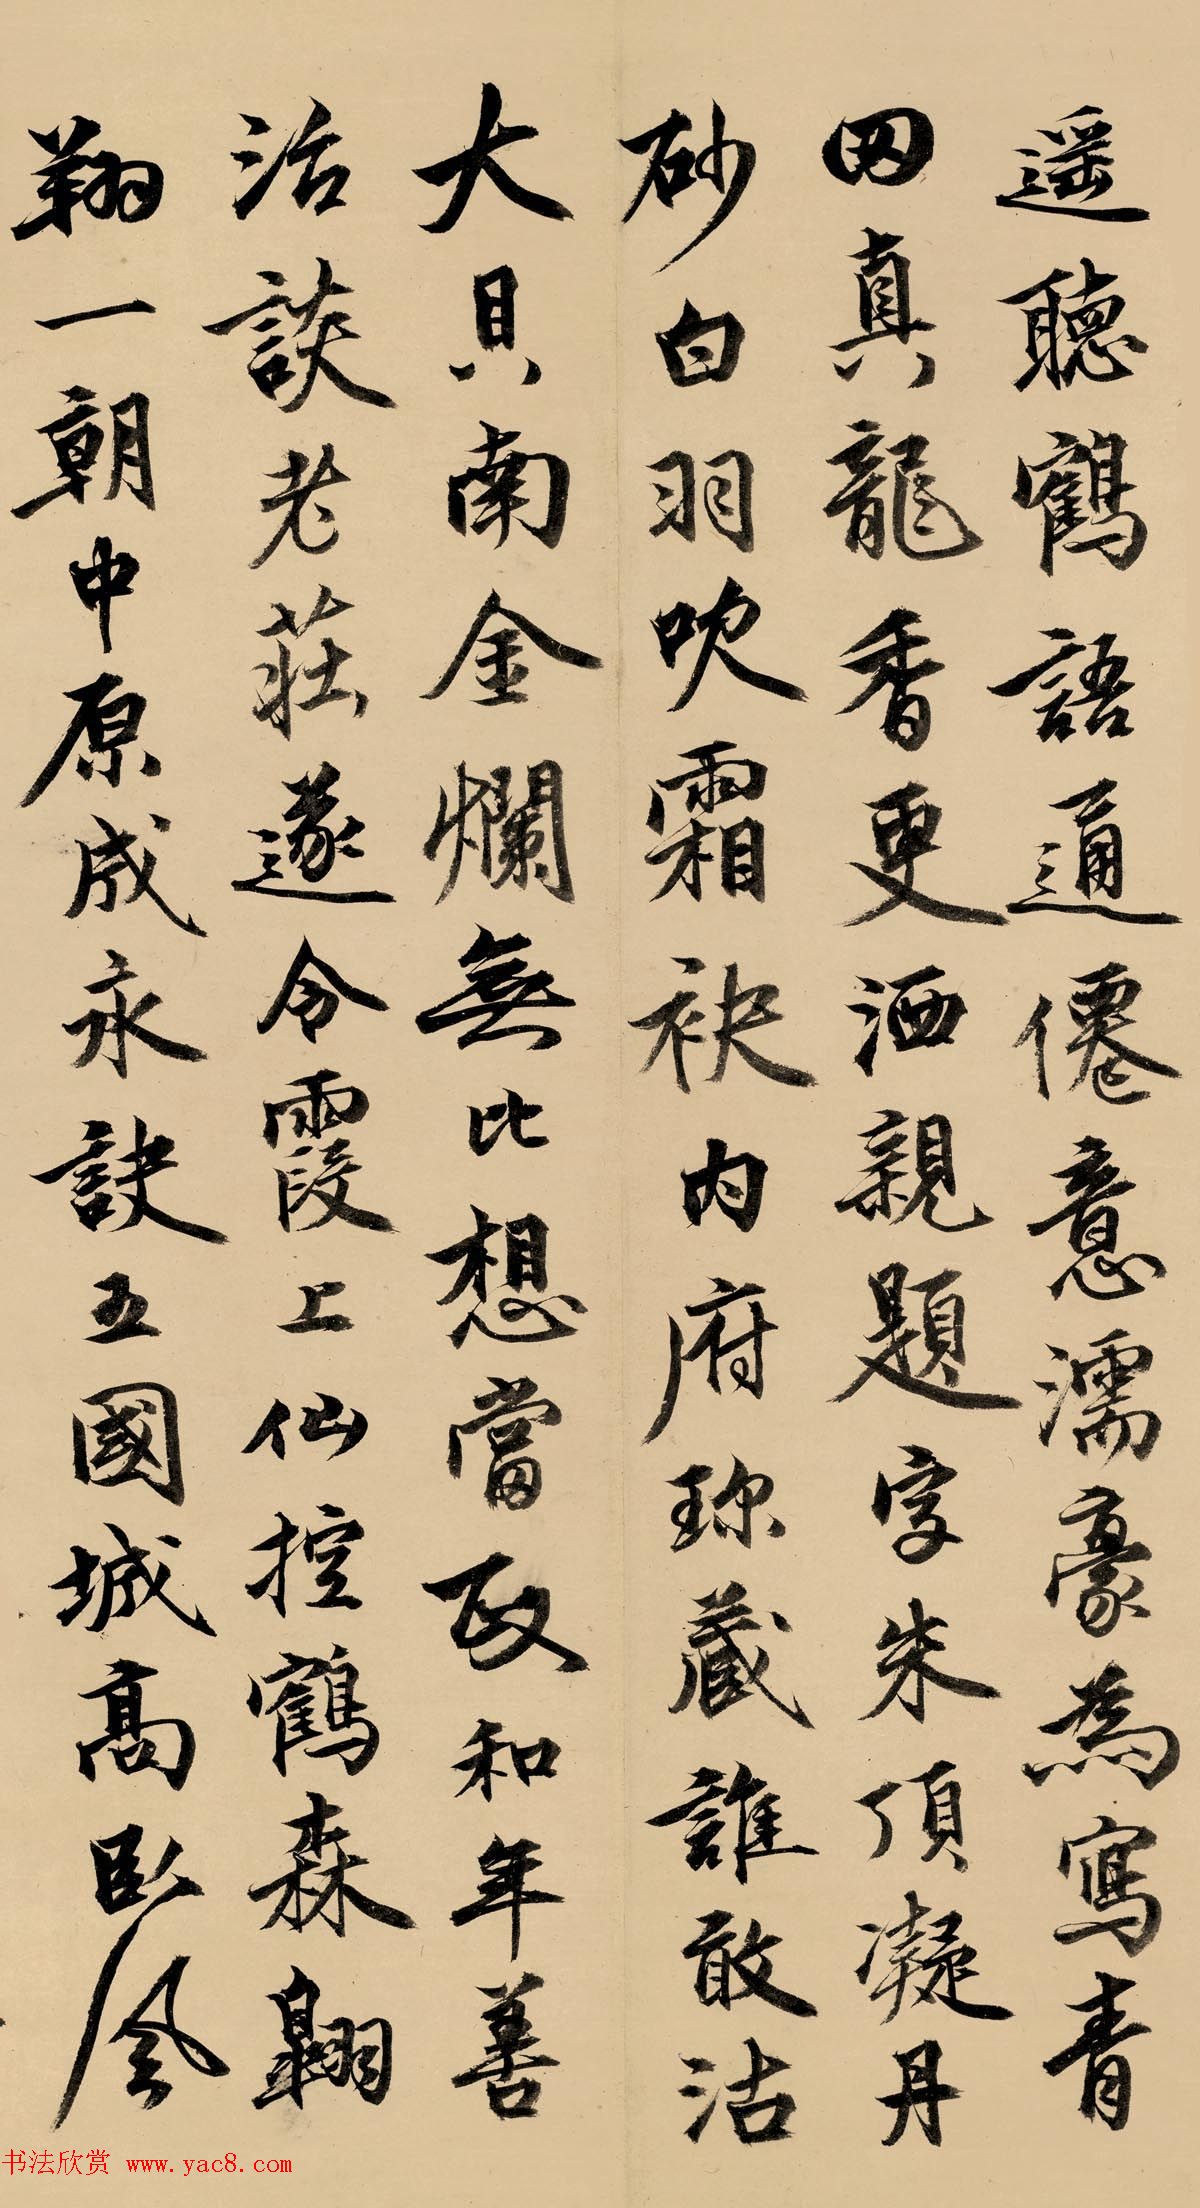 遥聽鶴語通僊意濡豪為寫青
田真龍香更洒親題字朱頂凝丹
砂白羽吹霜袂内府珎藏誰敢沽
大貝南金爛無比想當政和年善
治談老莊遂令霞上仙控鶴森翱
翔一朝中原成永訣五國城高臥風
书法欣赏 www.yac8.com